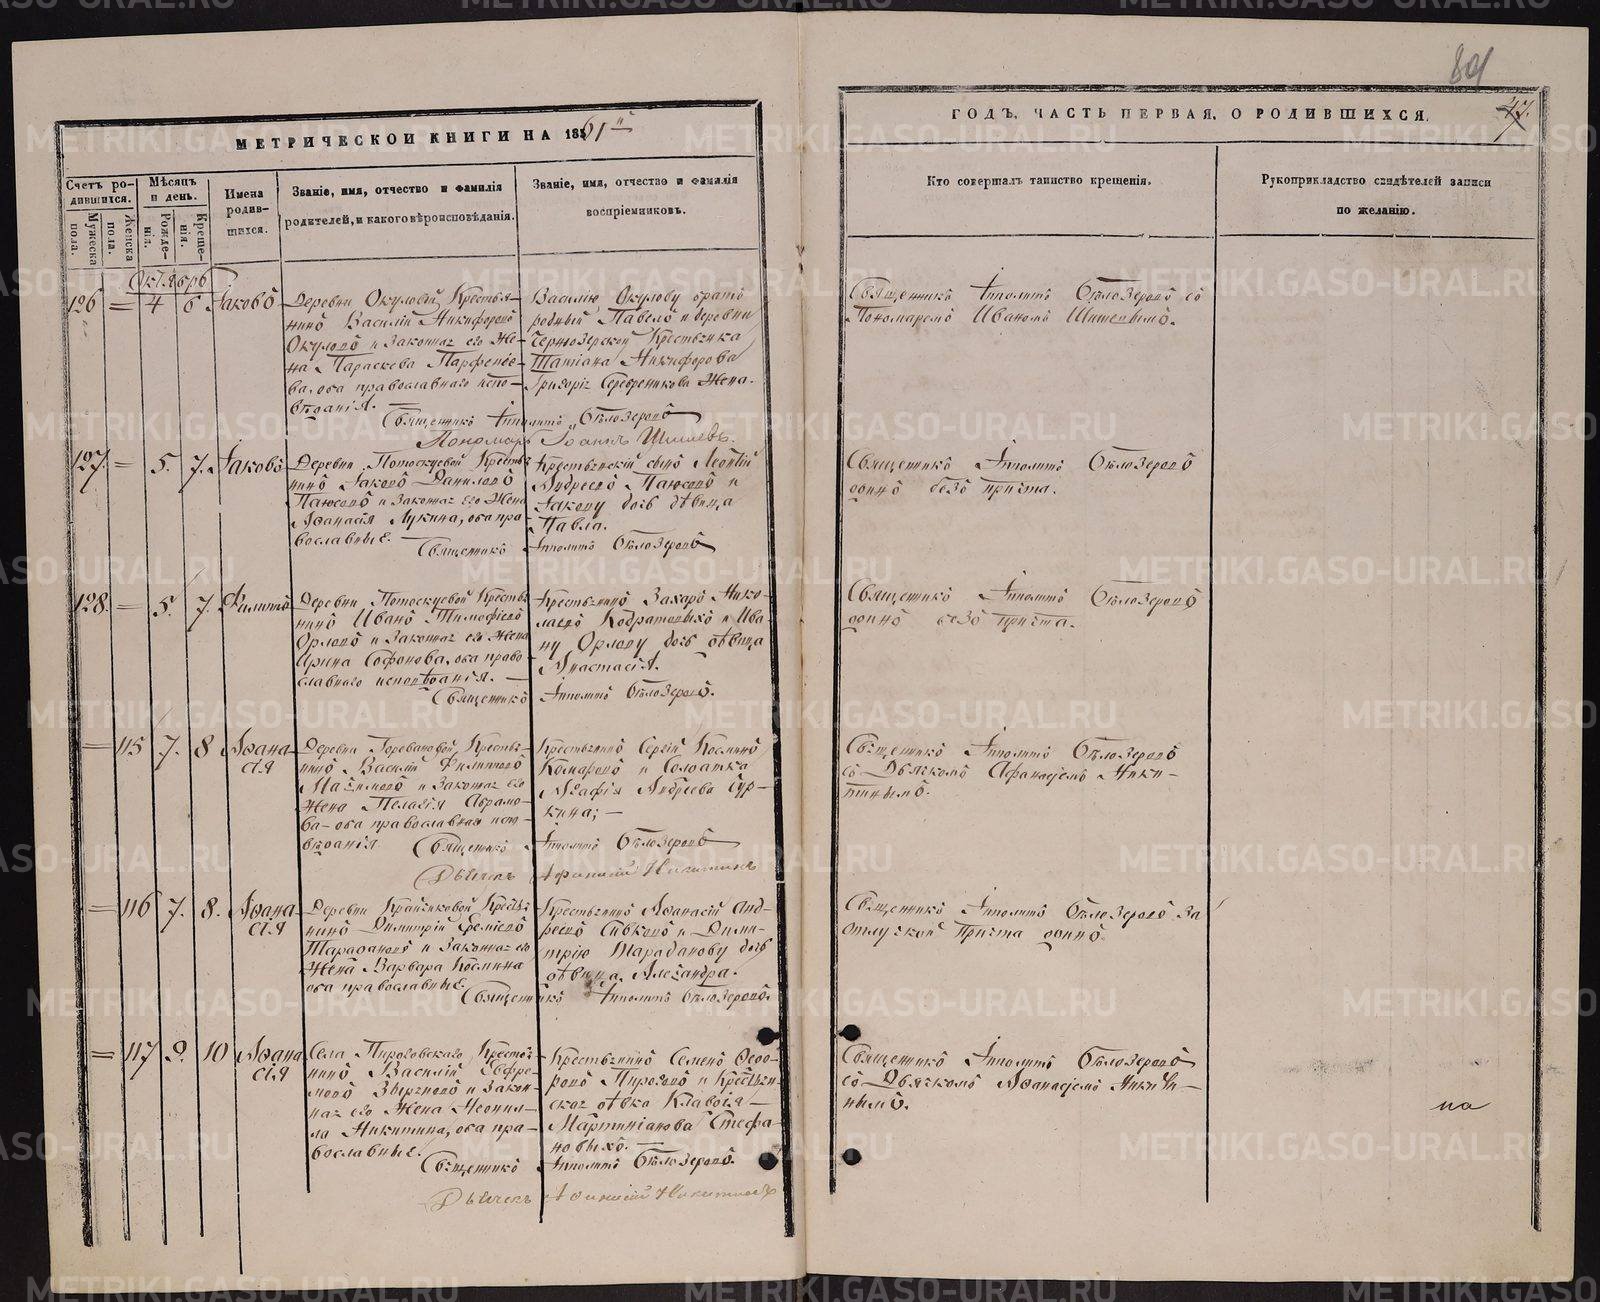 89
47.
МЕТРИЧЕСКОЙ КНИГИ НА 1861й
ГОДЪ, ЧАСТЬ ПЕРВАЯ, О РОДИВШИХСЯ.
Счетъ родившихся.
Мужеска пола.
Женска пола.
Мѣсяцъ и день.
Рожденія.
Крещенія.
Имена родившихся.
Званіе, имя, отчество и фамилія
родителей, и какого вѣроисповѣданія.
Званіе, имя, отчество и фамилія
воспріемниковъ.
Кто совершалъ таинство крещенія.
Рукоприкладство свидѣтелей записи
по желанію.
Октябрь
126 = 4 6 Іаковъ
Деревни Окуловой Крестья-
нинъ Василій Никифоровъ
Окуловъ и Законная его Же-
на Параскева Парфенов-
ва, оба православнаго испо-
вѣданія.
Василію Окулову братъ
родный Павелъ и деревни
Черноозерской Крестьянка
Татіана Никифорова
Григорія Серебреникова Жена.
Священникъ Ипполитъ Бѣлозеровъ
Пономарь Іоаннъ Шишевъ.
Священникъ Ипполитъ Бѣлозеровъ съ
Пономаремъ Иваномъ Шишевымъ.
127. = 5. 7. Іаковъ
Деревни Потоскуевой Кресть-
нинъ Іаковъ Даниловъ
Паюсовъ и Законная его Жена
Аѳанасія Лукина, оба пра-
вославные.
Крестьянскій сынъ Леонтій
Андреевъ Паюсовъ и
Іакову дочь дѣвица
Павла.
Священникъ Ипполитъ Бѣлозеровъ
Священникъ Ипполитъ Бѣлозеровъ
одинъ безъ причта.
128. = 5. 7. Филиппъ
Деревни Потоскуевой Кресть-
нинъ Иванъ Тимофіевъ
Орловъ и Законная его Жена
Ирина Софонова, оба право-
славнаго исповѣданія.
Крестьянинъ Захаръ Нико-
лаевъ Кодратовыхъ и Ива-
ну Орлову дочь дѣвица
Анастасія.
Священникъ Ипполитъ Бѣлозеровъ.
Священникъ Ипполитъ Бѣлозеровъ
одинъ безъ причта.
= 115 7. 8 Аѳана-
сія
Деревни Горевановой Кресть-
нинъ Василій Филиповъ
и Законная его
Жена Пелагія Аврамо-
ва оба православнаго испо-
вѣданія.
Крестьянинъ Сергій Косминъ
Комаровъ и Солдатка
Агафія Андреева Сур-
кина; —
Священникъ Ипполитъ Бѣлозеровъ
Дьячекъ Афанасій Никитинъ
Священникъ Ипполитъ Бѣлозеровъ
съ Дьячкомъ Афанасіемъ Ники-
тинымъ.
= 116 7. 8. Аѳана-
сія
Деревни Крайчиковой Кресть-
нинъ Димитрій Еремѣевъ
Тарабановъ и Законная его
Жена Варвара Космина
оба православные.
Крестьянинъ Аѳанасій Анд-
реевъ Сивковъ и Дими-
трію Тарабанову дочь
дѣвица, Александра.
Священникъ Ипполитъ Бѣлозеровъ.
Священникъ Ипполитъ Бѣлозеровъ за
отлучкой Причта одинъ.
= 117 9. 10 Аѳана-
сія
Села Пироговскаго Кресть-
нинъ Василій Ефре-
мовъ и Закон-
ная его Жена Неонил-
ла Никитина, оба пра-
вославные.
Крестьянинъ Семенъ Ѳедо-
ровъ Пироговъ и Крестьян-
ская дѣвка Клавдія
Мартиніанова Стефа-
новыхъ.
Священникъ Ипполитъ Бѣлозеровъ.
Дьячекъ Афанасій Никитинъ
Священникъ Ипполитъ Бѣлозеровъ
съ Дьячкомъ Аѳанасіемъ Никити-
нымъ.
на
METRIKI.GASO-URAL.RU